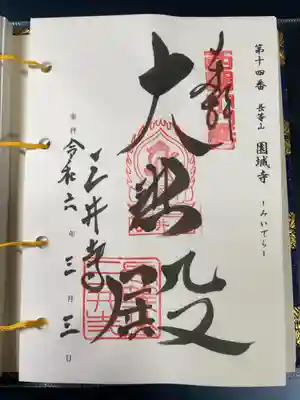 第十四番 長等山 園城寺 ーみいでらー
奉拝
大悲殿
三井寺
奉拝 令和六年三月三日